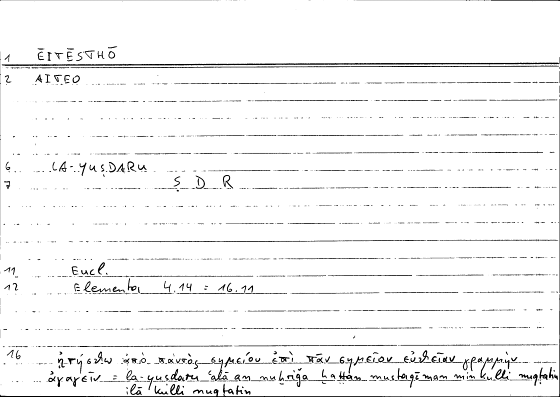 1 ĒITĒSTHŌ
2 AITEO
6 LA-YUṢDARU
7 Ṣ D R
11 Eucl.
12 Elementa 4.14 = 16.11
16 ᾐτήσθω ἀπὸ παντὸς σημείου ἐπὶ πᾶν σημεῖον εὐθεῖαν γραμμὴν
ἀγαγεῖν = la-yuṣdaru ʿalā an nuḫriǧa ḫaṭṭan mustaqīman min kulli nuqṭatin
ilā kulli nuqṭatin